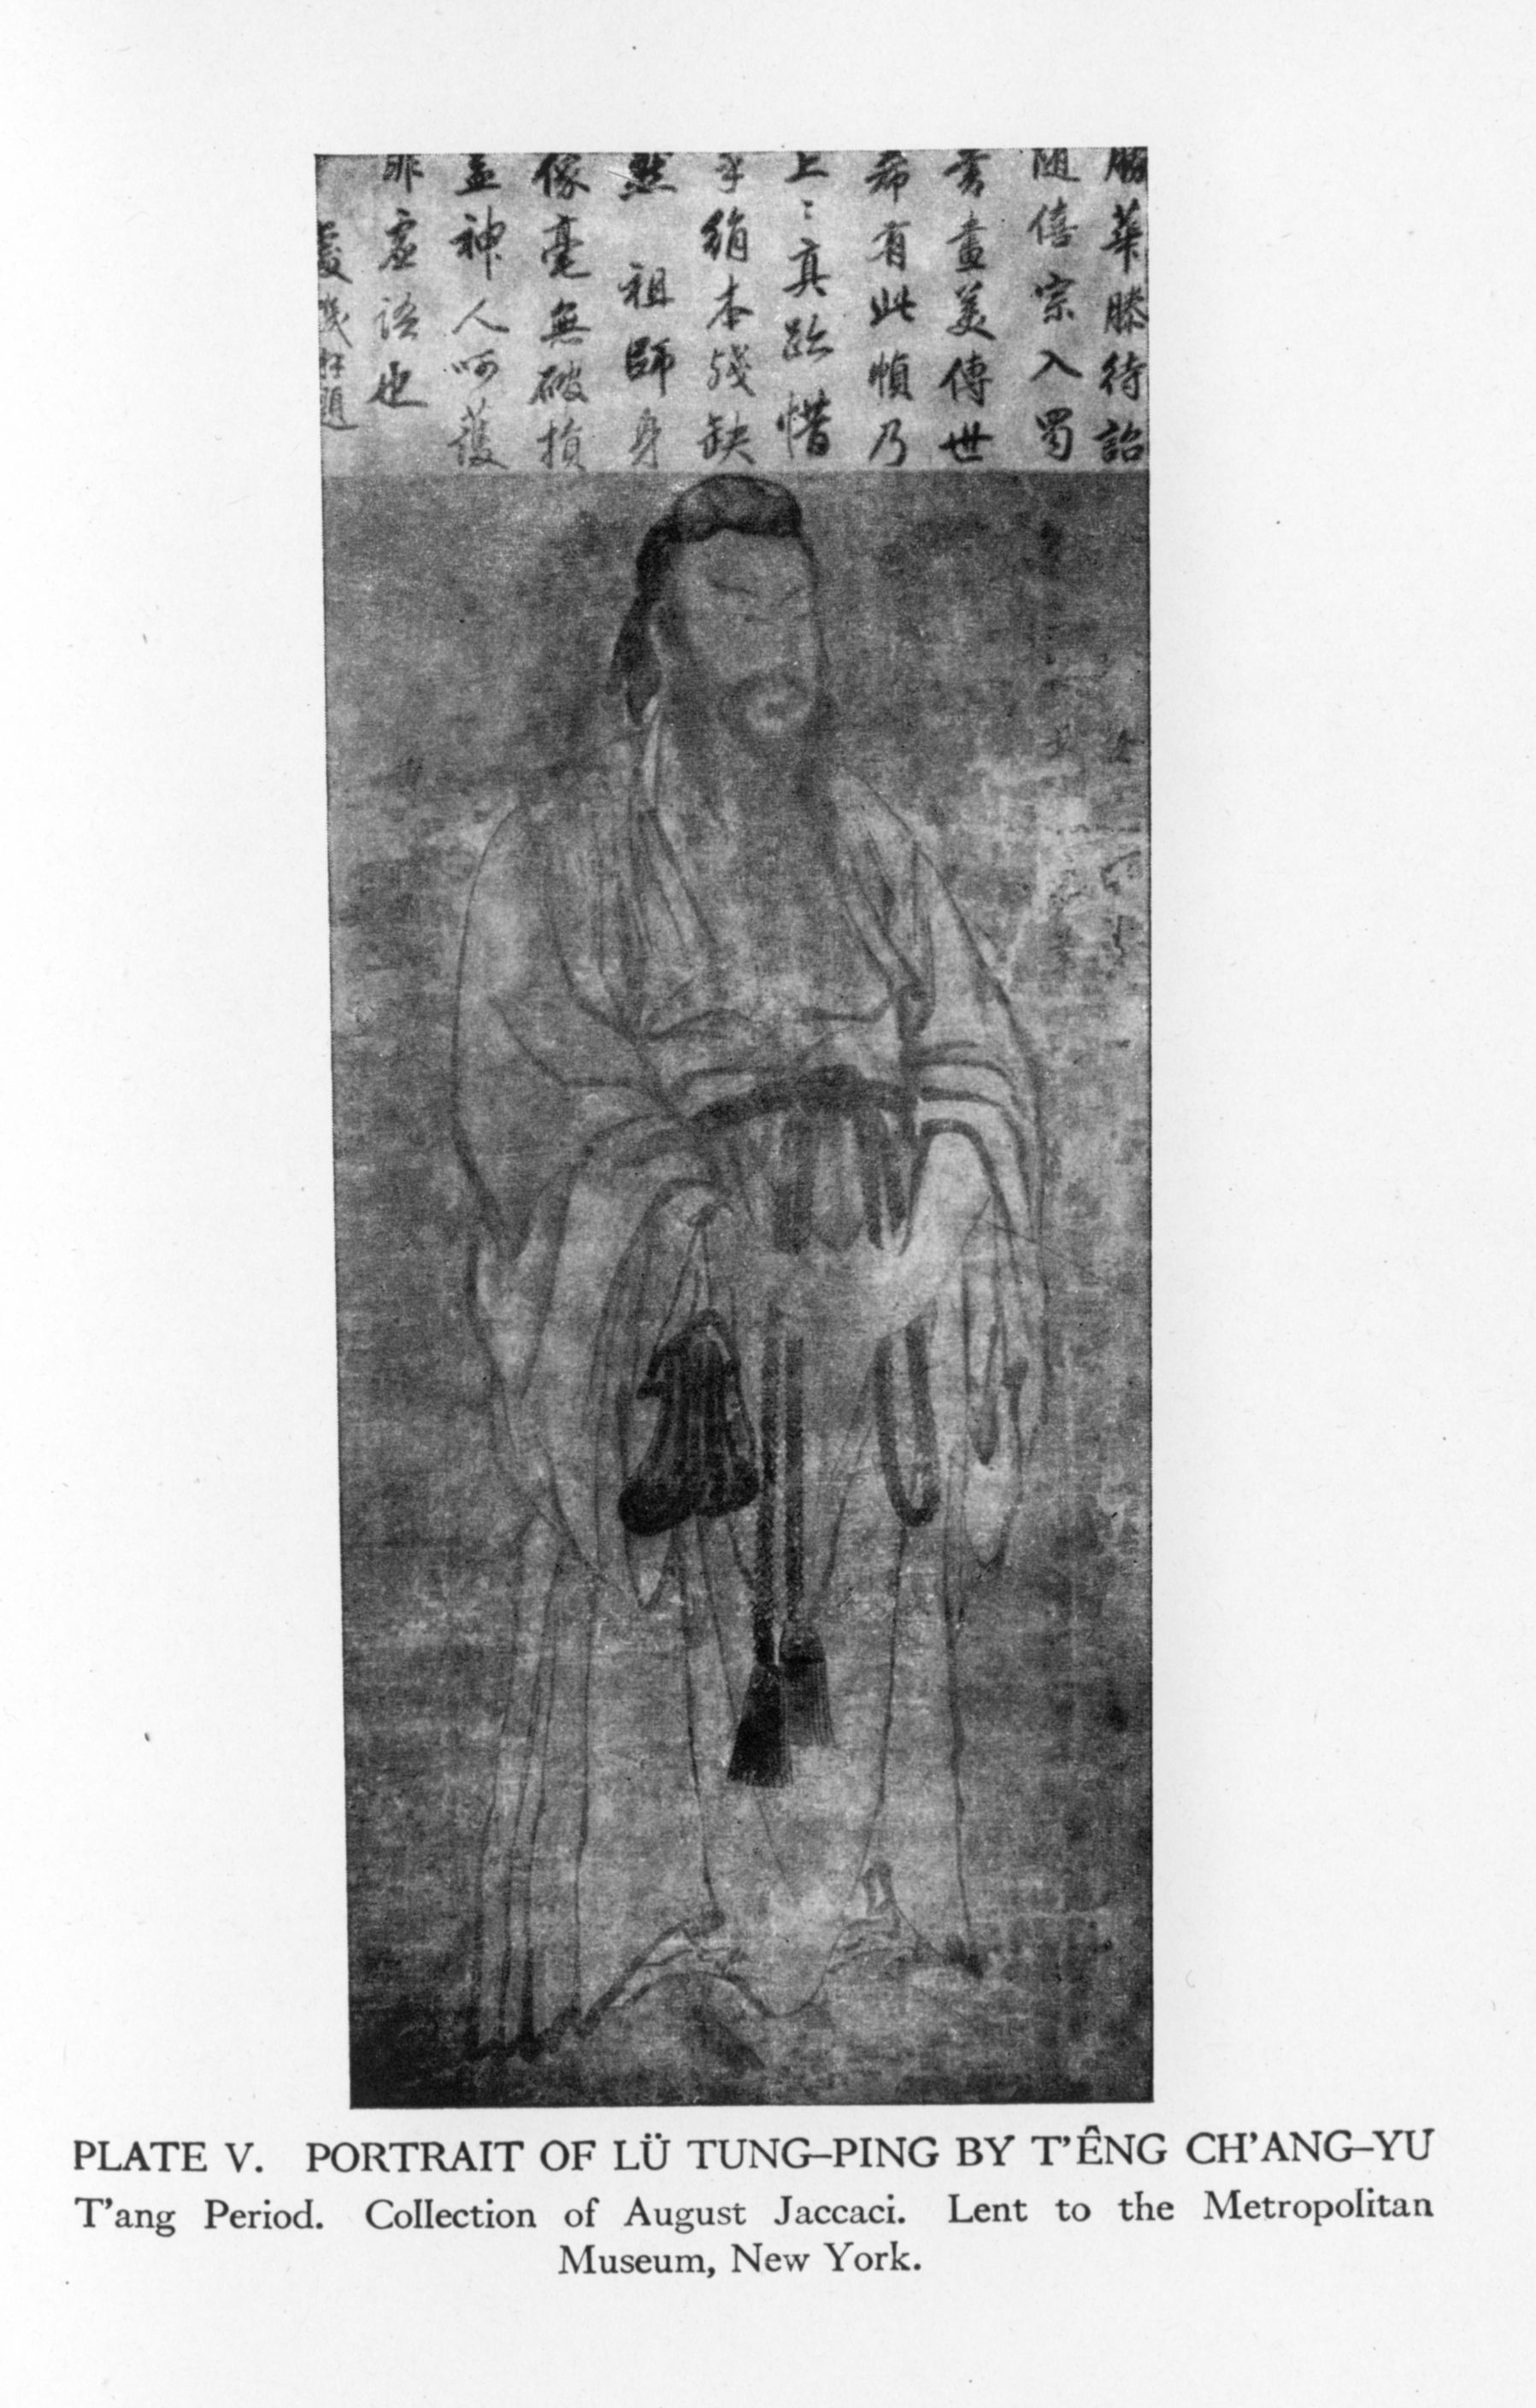 勝華滕待詔
随僖宗入蜀
書畫美傳世
希有此幀乃
上〻真跡惜
乎絹本殘缺
然祖師身
像毫無破損
孟神人呵護
非虛語也
題
PLATE V. PORTRAIT OF LÜ TUNG–PING BY T’ÊNG CH’ANG–YU
T’ang Period. Collection of August Jaccaci. Lent to the Metropolitan
Museum, New York.